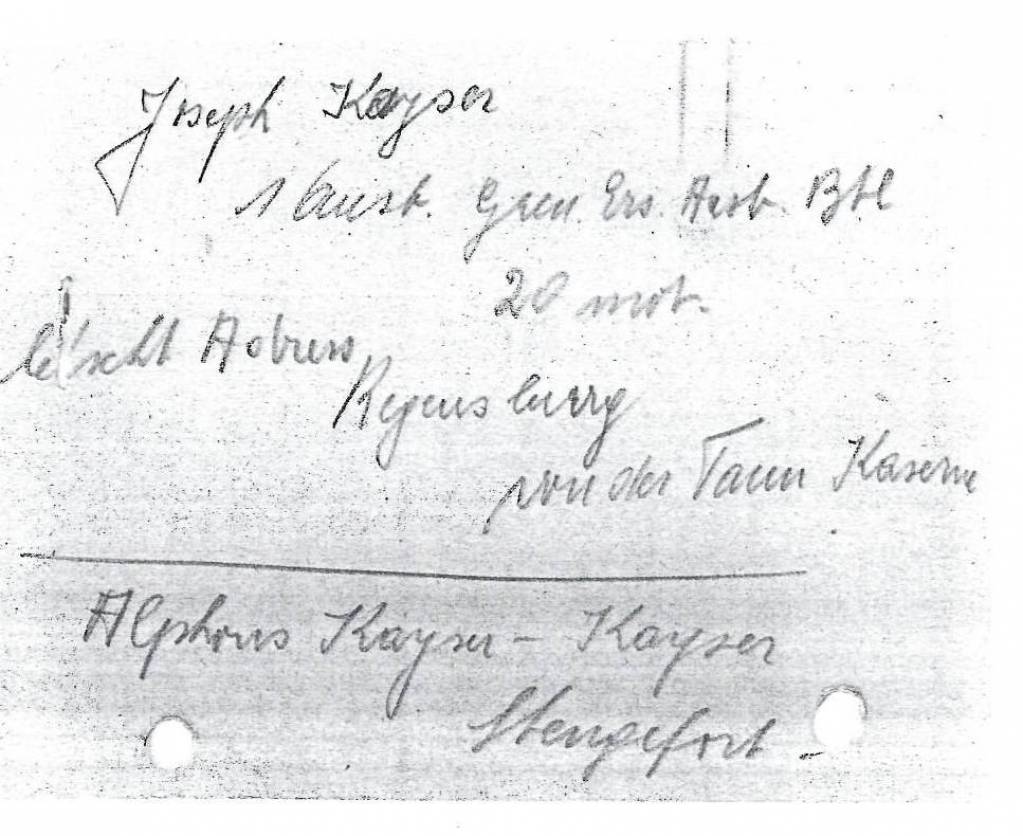 Joseph Kayser
Gren. Ers. Ausb. Btl
20 mot.
letscht Adress
Regensburg
von der Tann Kaserne
Alphons Kayser - Kayser
Stengefort -